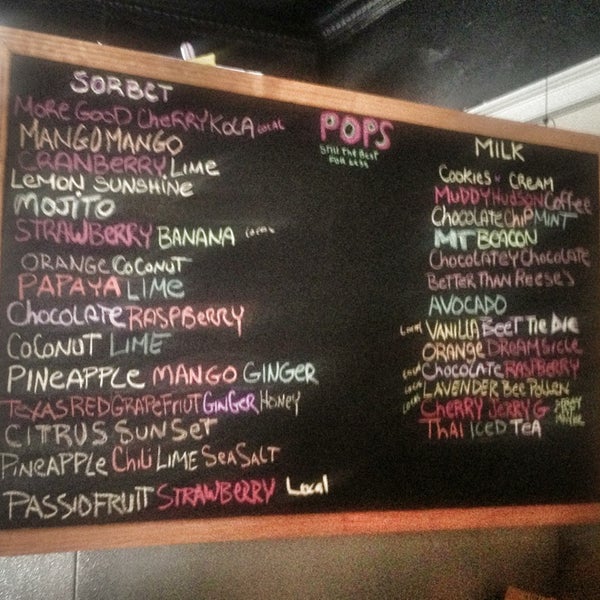 SORBET
MORE GOOD CHERRY KOLA LOCAL
MANGO MANGO
CRANBERRY LIME
LEMON SUNSHINE
MOJITO
STRAWBERRY BANANA LOCAL
ORANGE COCONUT
PAPAYA LIME
CHOCOLATE RASPBERRY
COCONUT LIME
PINEAPPLE MANGO GINGER
TEXAS RED GRAPEFRUIT GINGER HONEY
CITRUS SUNSET
PINEAPPLE CHILI LIME SEA SALT
PASSIOFRUIT STRAWBERRY Local
POPS
STILL THE BEST
FOR LESS
MILK
COOKIES CREAM
MUDDY HUDSON COFFEE
CHOCOLATE CHIP MINT
MT BEACON
CHOCOLATEY CHOCOLATE
BETTER THAN REESE'S
AVOCADO
Local VANILLA BEET TIE DIE
ORANGE DREAMSICLE
Local CHOCOLATE RASPBERRY
Local LAVENDER BEE POLLEN
CHERRY JERRY G
THAI ICED TEA